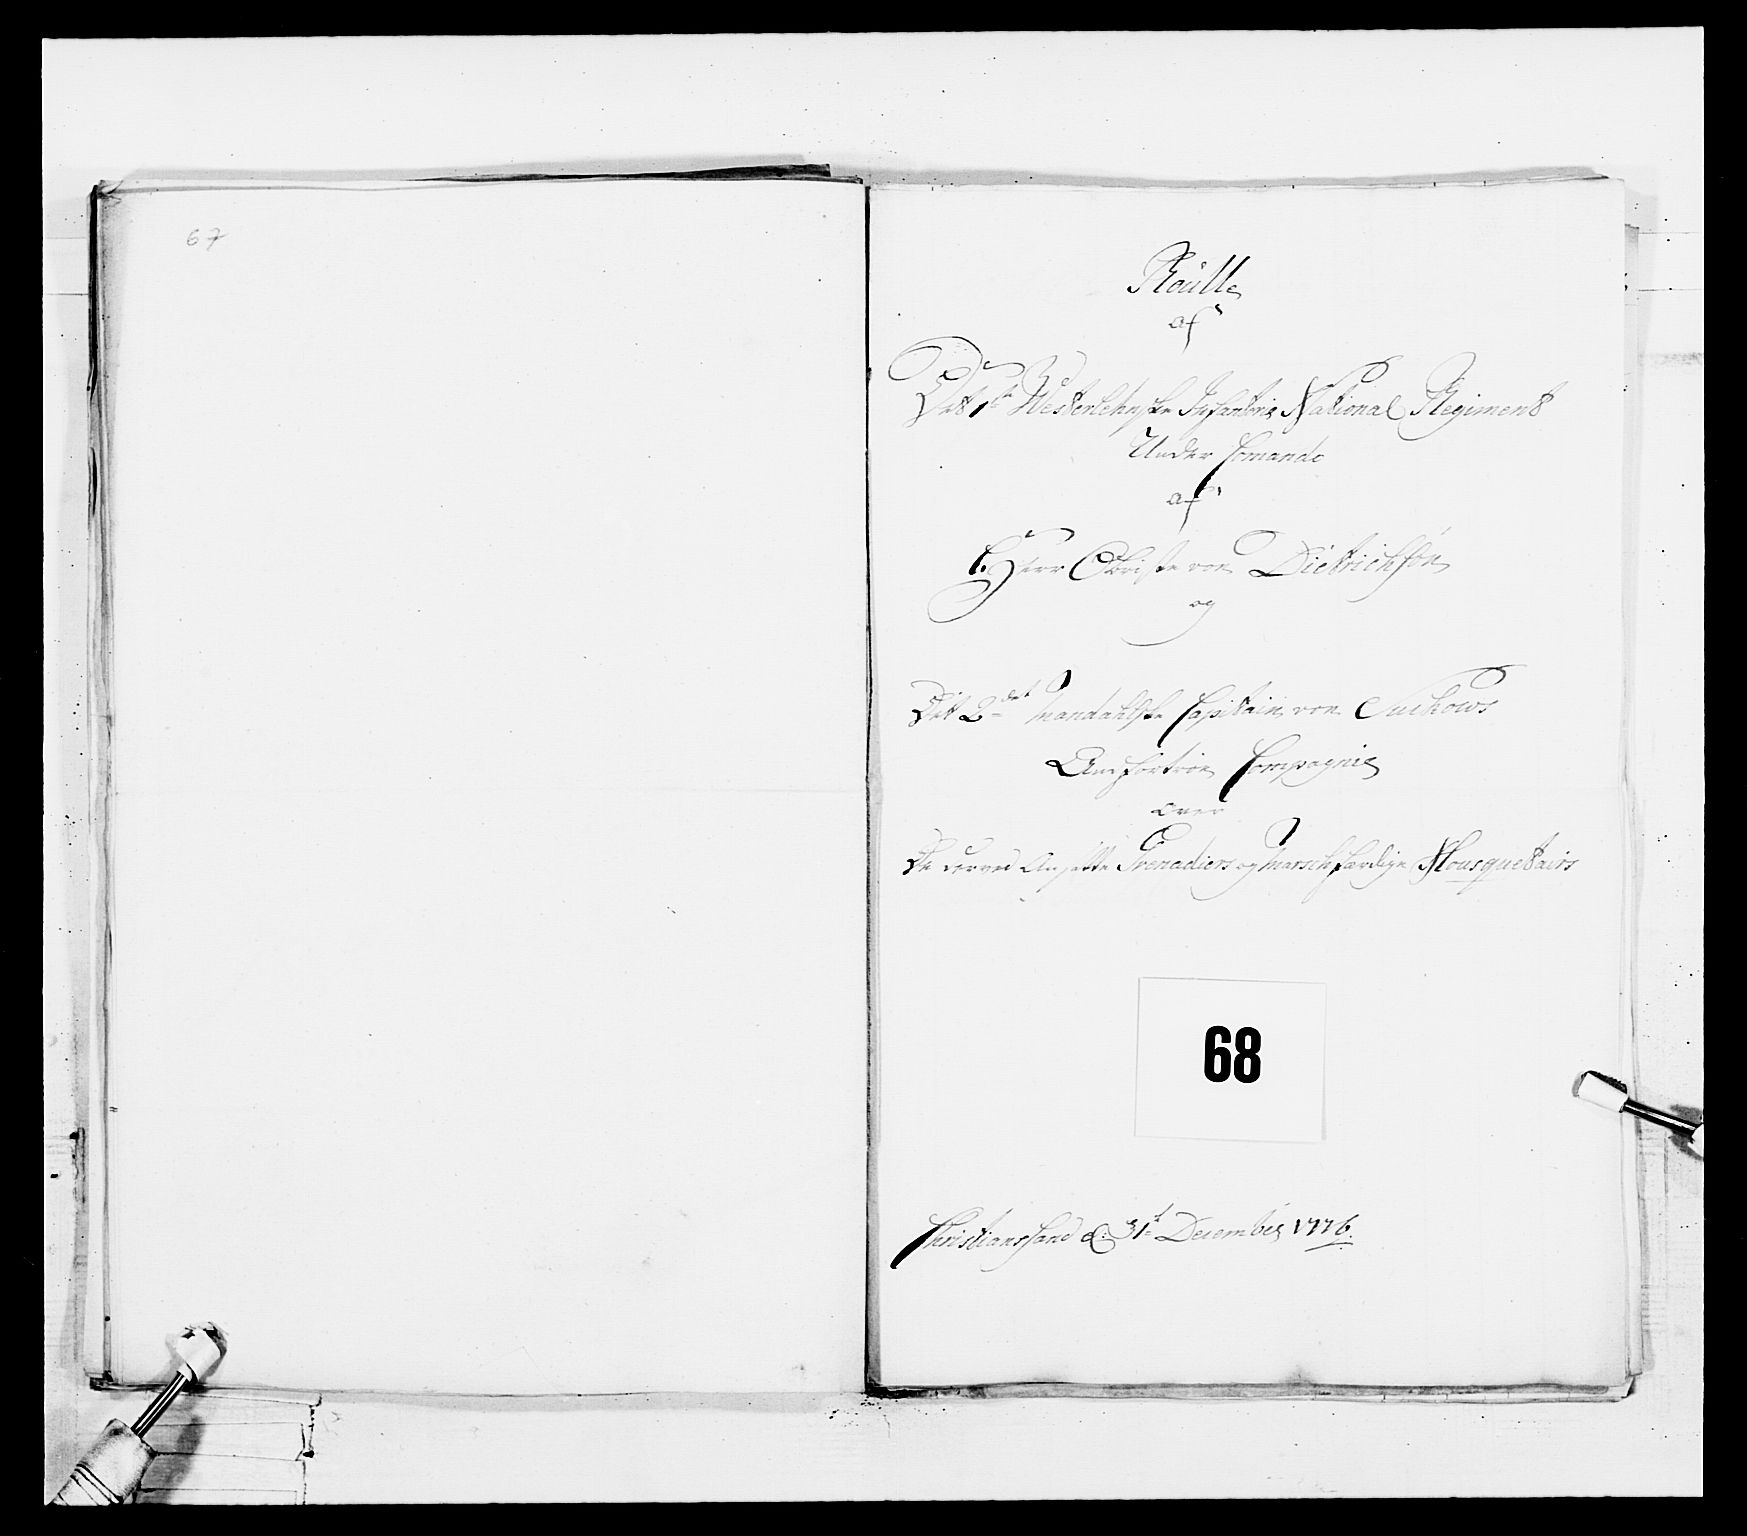 67
Roulle
af
Det 1te Westerlehnske Infanterie National Regiment
Under Comando
af
Hr Herr Obriste von Dietrichson
og
Det 2det Mandahlske Capitain von Suchows
Anfortroe Compagnie
over
De derved Ansatte Grenadiers og Marschfærdige Mousquetairs
68
Christianssand d: 31t December 1776.